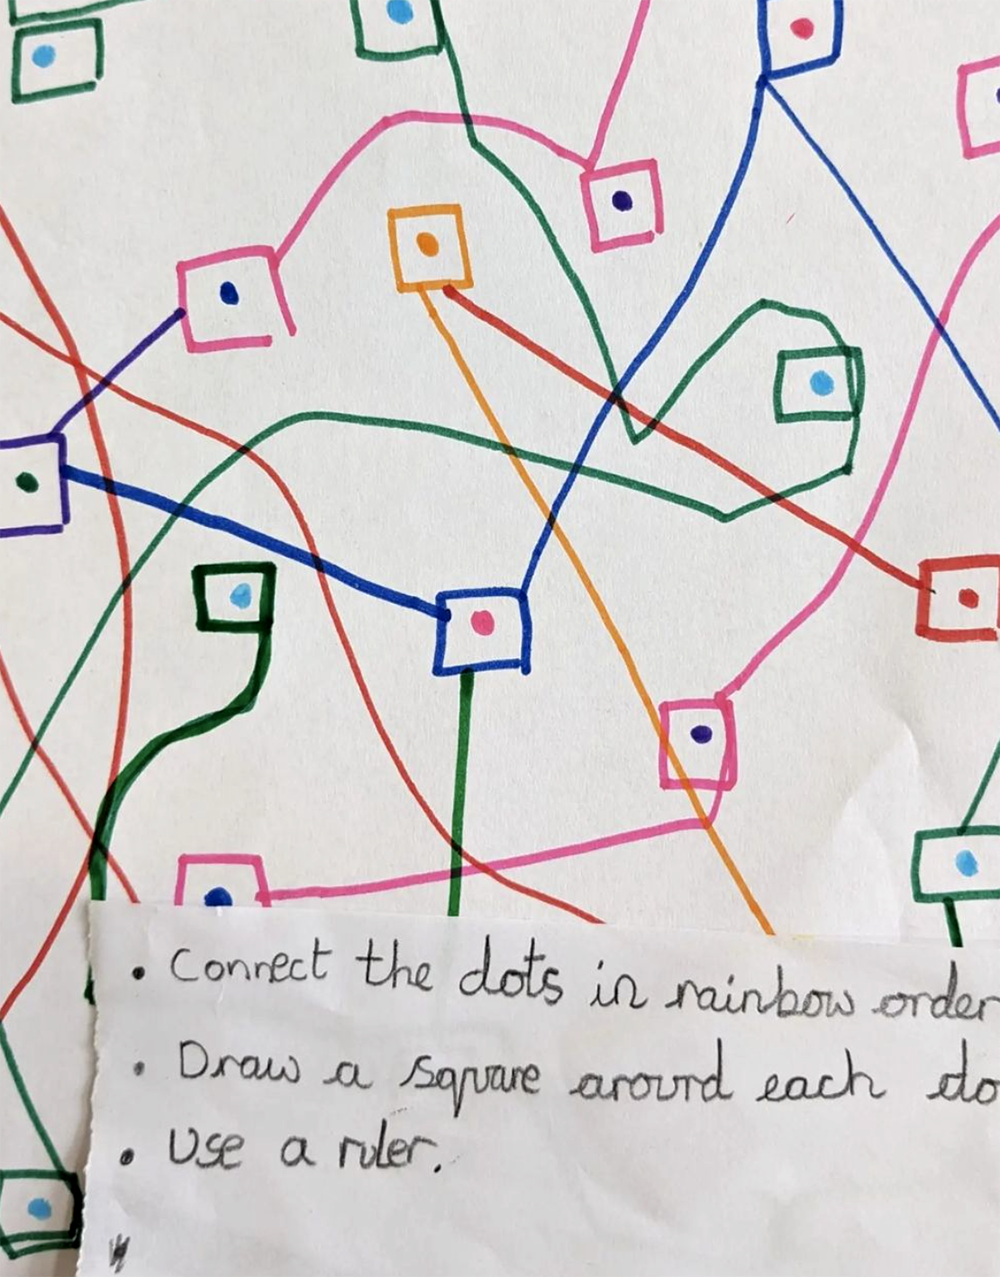 • Connect the dots in rainbow order
• Draw a square around each do
• Use a ruler.